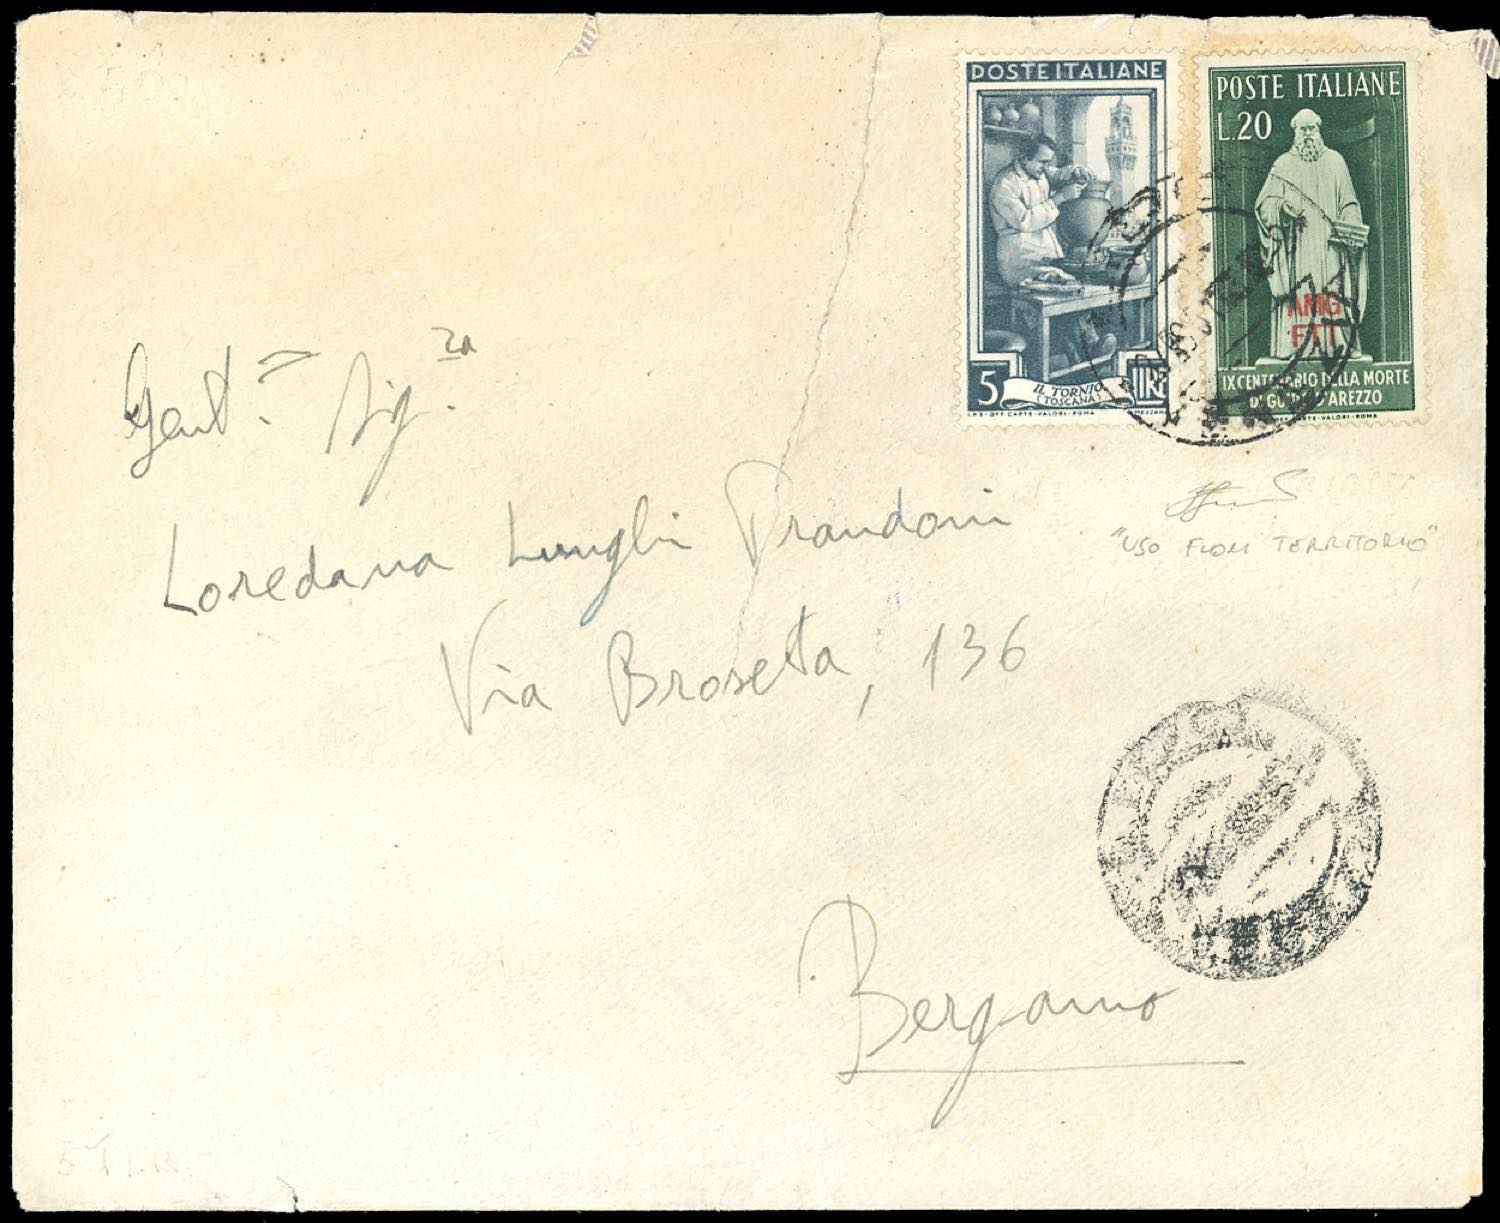 POSTE ITALIANE
5 IL TORNIO LIRE
(TOSCANA)
I.P.S-OFF CARTE-VALORI-ROMA MEZZANA
POSTE ITALIANE
L.20
AMG
FTT
IX CENTENARIO DELLA MORTE
DI GUIDO D'AREZZO
OFF CARTE-VALORI-ROMA
Gent.ma Sig.ra
Loredana Lunghi Prandoni
Via Broseta, 136
Bergamo
"USO FUORI TERRITORIO"